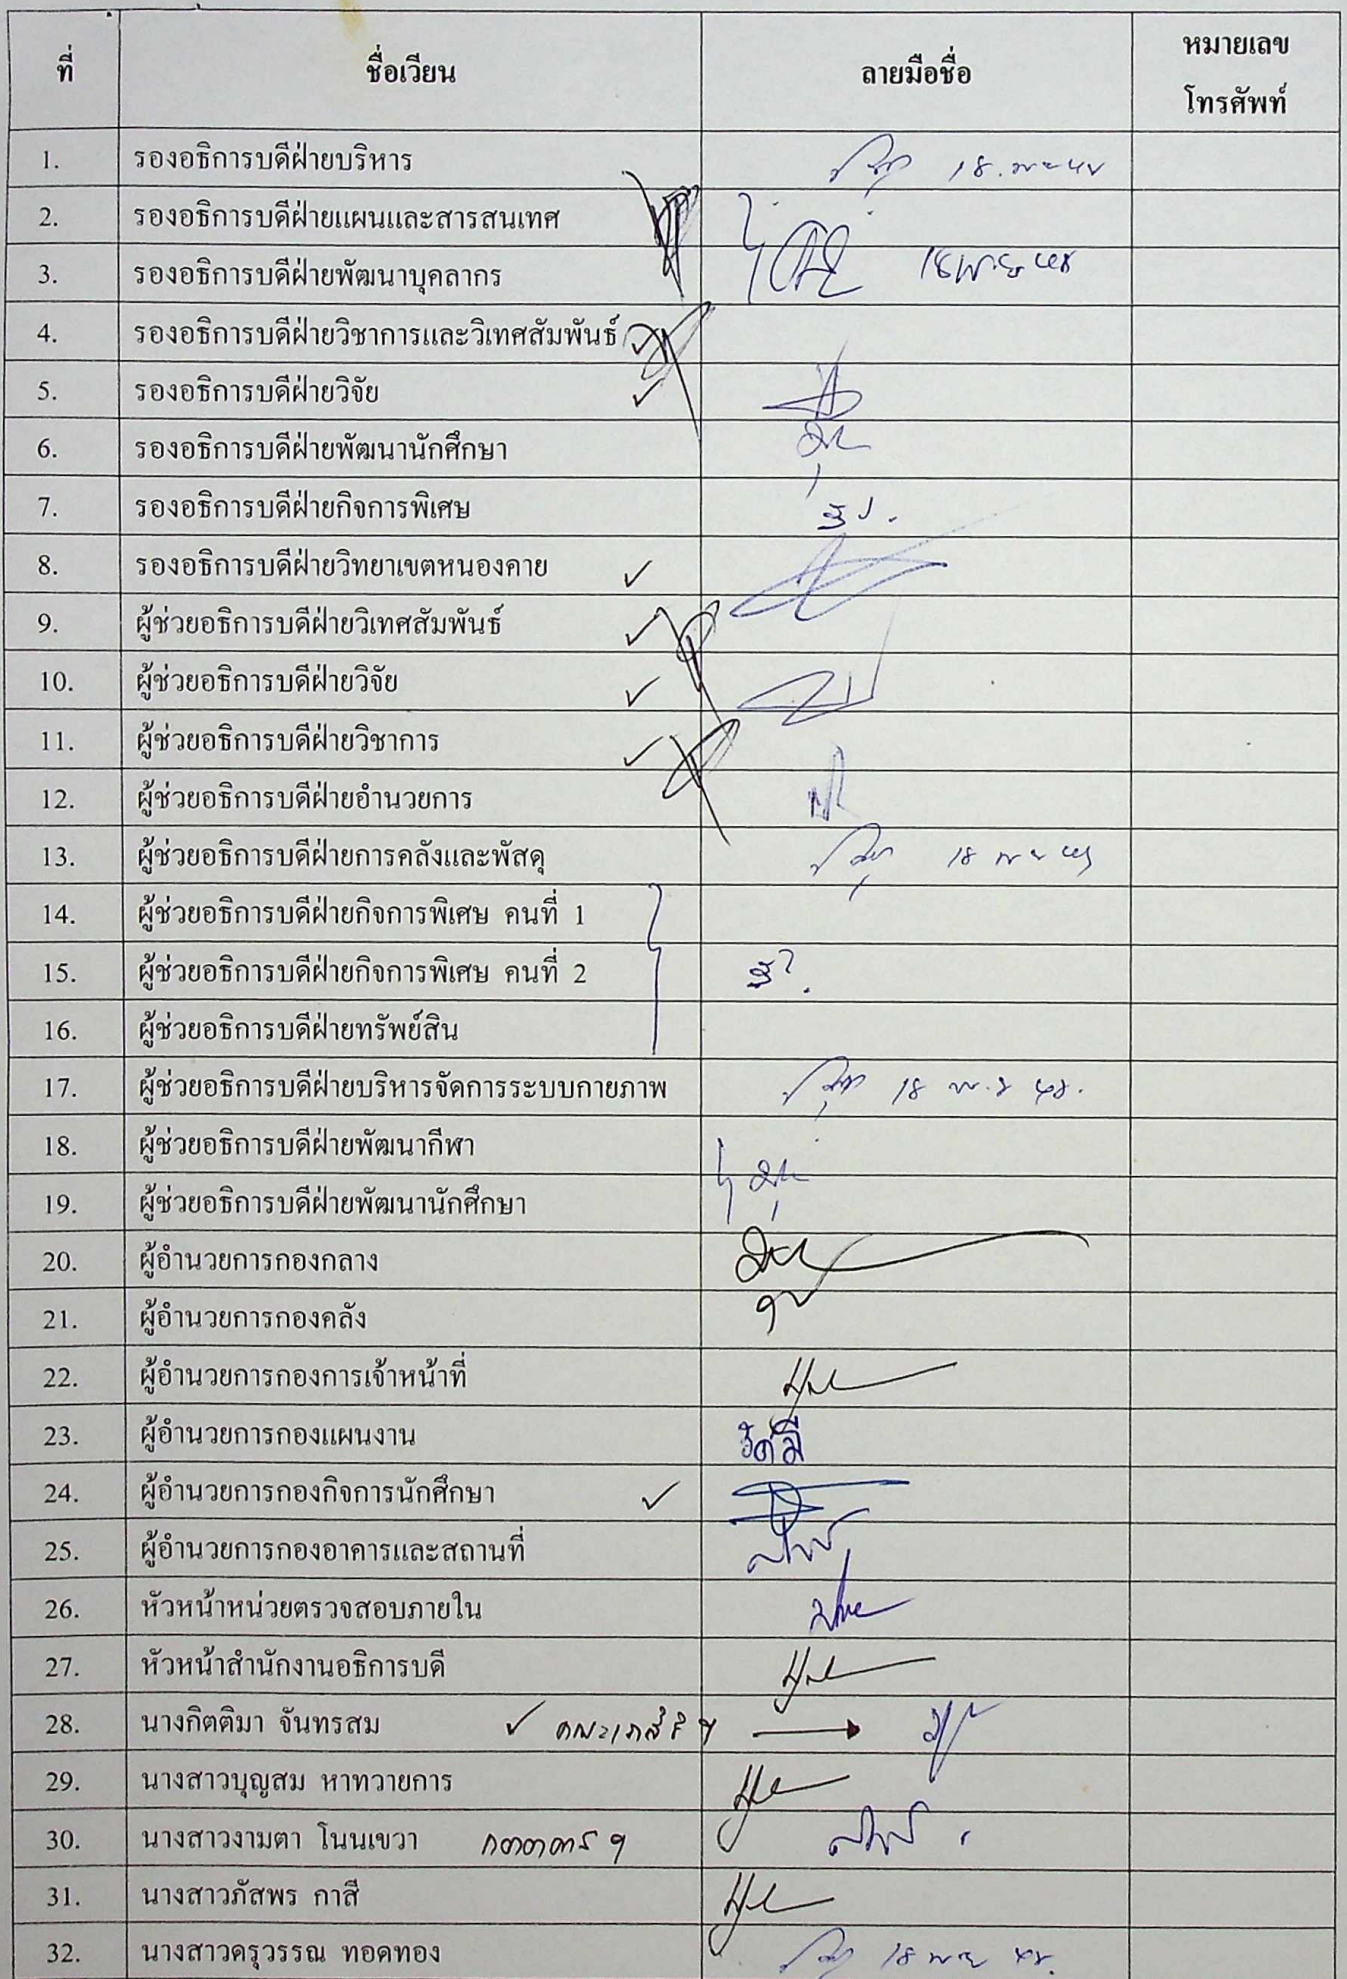 ที่ ชื่อเวียน ลายมือชื่อ หมายเลข
โทรศัพท์
1. รองอธิการบดีฝ่ายบริหาร 18
2. รองอธิการบดีฝ่ายแผนและสารสนเทศ
3. รองอธิการบดีฝ่ายพัฒนาบุคลากร 18
4. รองอธิการบดีฝ่ายวิชาการและวิเทศสัมพันธ์
5. รองอธิการบดีฝ่ายวิจัย
6. รองอธิการบดีฝ่ายพัฒนานักศึกษา
7. รองอธิการบดีฝ่ายกิจการพิเศษ
8. รองอธิการบดีฝ่ายวิทยาเขตหนองคาย
9. ผู้ช่วยอธิการบดีฝ่ายวิเทศสัมพันธ์
10. ผู้ช่วยอธิการบดีฝ่ายวิจัย
11. ผู้ช่วยอธิการบดีฝ่ายวิชาการ
12. ผู้ช่วยอธิการบดีฝ่ายอำนวยการ
13. ผู้ช่วยอธิการบดีฝ่ายการคลังและพัสดุ 18
14. ผู้ช่วยอธิการบดีฝ่ายกิจการพิเศษ คนที่ 1
15. ผู้ช่วยอธิการบดีฝ่ายกิจการพิเศษ คนที่ 2
16. ผู้ช่วยอธิการบดีฝ่ายทรัพย์สิน
17. ผู้ช่วยอธิการบดีฝ่ายบริหารจัดการระบบกายภาพ 18 พ.ย 48.
18. ผู้ช่วยอธิการบดีฝ่ายพัฒนากีฬา
19. ผู้ช่วยอธิการบดีฝ่ายพัฒนานักศึกษา
20. ผู้อำนวยการกองกลาง
21. ผู้อำนวยการกองคลัง
22. ผู้อำนวยการกองการเจ้าหน้าที่
23. ผู้อำนวยการกองแผนงาน
24. ผู้อำนวยการกองกิจการนักศึกษา
25. ผู้อำนวยการกองอาคารและสถานที่
26. หัวหน้าหน่วยตรวจสอบภายใน
27. หัวหน้าสำนักงานอธิการบดี
28. นางกิตติมา จันทรสม คณะเภสัช ฯ
29. นางสาวบุญสม หาทวายการ
30. นางสาวงามตา โนนเขวา
31. นางสาวภัสพร กาสี
32. นางสาวดรุวรรณ ทอดทอง 18